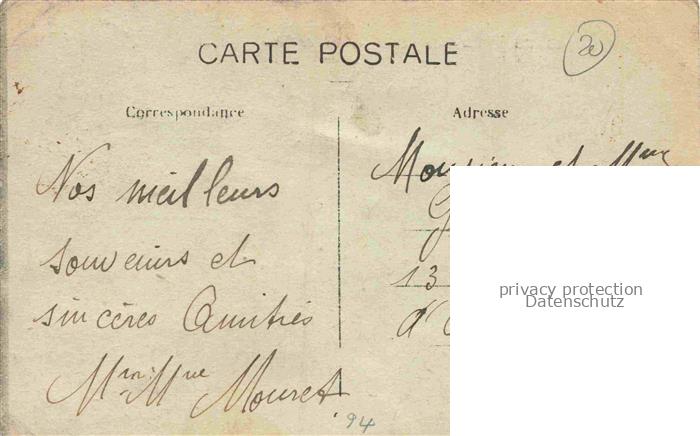 CARTE POSTALE
20
Correspondance
Adresse
Nos meilleurs
souvenirs et
sincères Amitiés
Mr Mme Mouret
94
Monsieur et Mme
G
13
d'
privacy protection
Datenschutz